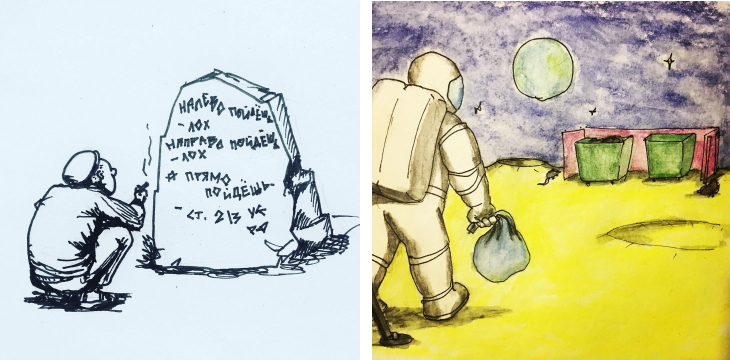 НАЛЕВО ПОЙДЁШЬ
- ЛОХ
НАПРАВО ПОЙДЁШЬ
- ЛОХ
А ПРЯМО
ПОЙДЁШЬ -
- СТ. 213 УК
РФ